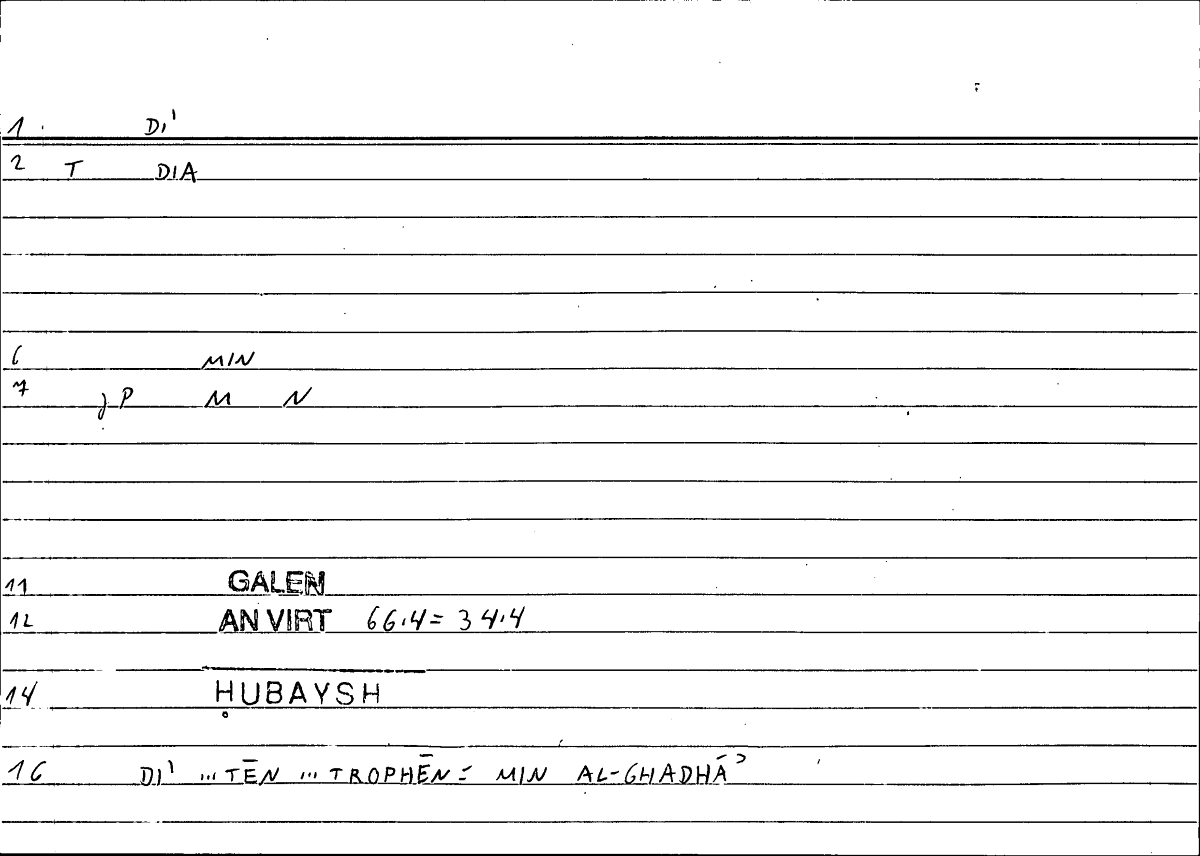 1 DI'
2 T DIA
6 MIN
7 j P M N
11 GALEN
12 AN VIRT 66.4 = 34.4
14 ḤUBAYSH
16 DI' ... TĒN ... TROPHĒN = MIN AL-GHADHĀʾ